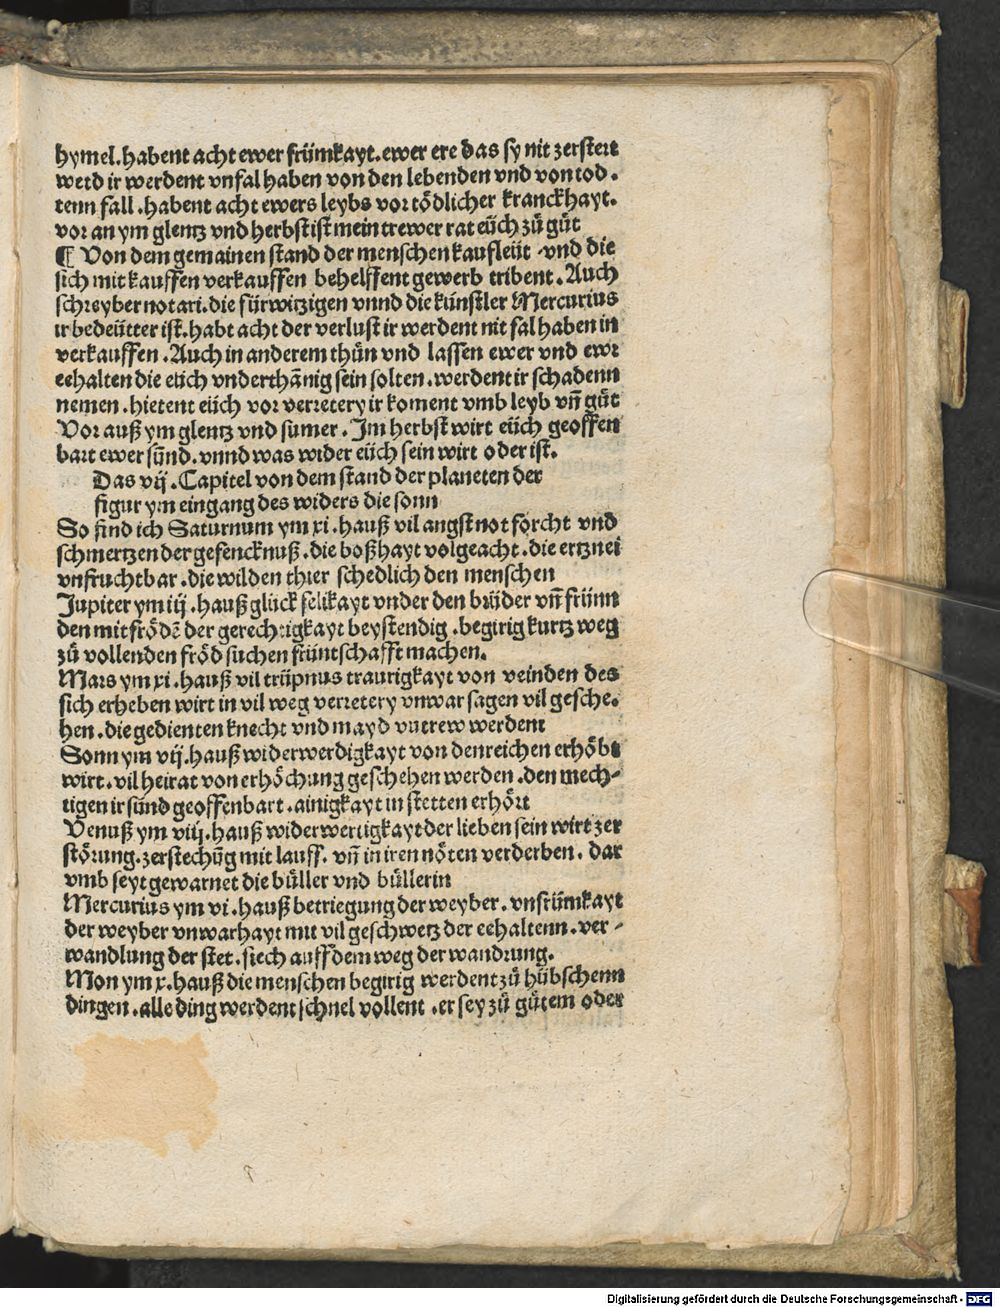 hymel. habent acht ewer frümkayt. ewer ere das sy nit zerstert
werd ir werdent vnfal haben von den lebenden vnd von tod.
tenn fall. habent acht ewers leybs vor tödlicher kranckhayt.
vor an ym glentz vnd herbst ist mein trewer rat eüch zů gůt
¶ Von dem gemainen stand der menschen kaufleüt. vnd die
sich mit kauffen verkauffen behelffent gewerb tribent. Auch
schreyber notari. die fürwitzigen vnnd die künstler Mercurius
ir bedeütter ist. habt acht der verlust ir werdent nit fal haben in
verkauffen. Auch in anderem thůn vnd lassen ewer vnd ewr
eehalten die eüch vnderthänig sein solten. werdent ir schadenn
nemen. hietent eüch vor verretery ir koment vmb leyb vñ gůt
Vor auß ym glentz vnd sumer. Im herbst wirt eüch geoffen
bart ewer sünd. vnnd was wider eüch sein wirt oder ist.
Das vij. Capitel von dem stand der planeten der
figur ym eingang des widers die sonn
So find ich Saturnum ym xi. hauß vil angst not forcht vnd
schmertzen der gefencknuß. die boßhayt volgeacht. die ertznei
vnfruchtbar. die wilden thier schedlich den menschen
Jupiter ym iij. hauß glück selikayt vnder den brüder vñ frünn
den mit frödẽ der gerechtigkayt beystendig. begirig kurtz weg
zů vollenden fröd suchen früntschafft machen.
Mars ym xi. hauß vil trüpnus traurigkayt von veinden des
sich erheben wirt in vil weg verretery vnwar sagen vil gesche.
hen. die gedienten knecht vnd mayd vntrew werdent
Sonn ym vij. hauß widerwerdigkayt von den reichen erhöbt
wirt. vil heirat von erhöchung geschehen werden. den mech-
tigen ir sünd geoffenbart. ainigkayt in stetten erhört
Venuß ym viij. hauß widerwertigkayt der lieben sein wirt zer
störung. zerstechũg mit lauff. vñ in iren nöten verderben. dar
vmb seyt gewarnet die bůller vnd bůllerin
Mercurius ym vi. hauß betriegung der weyber. vnfrümkayt
der weyber vnwarhayt mit vil geschwetz der eehaltenn. ver-
wandlung der stet. siech auff dem weg der wandrung.
Mon ym x. hauß die menschen begirig werdent zů hübschenn
dingen. alle ding werdent schnel vollent. er sey zů gůtem oder
Digitalisierung gefördert durch die Deutsche Forschungsgemeinschaft - DFG